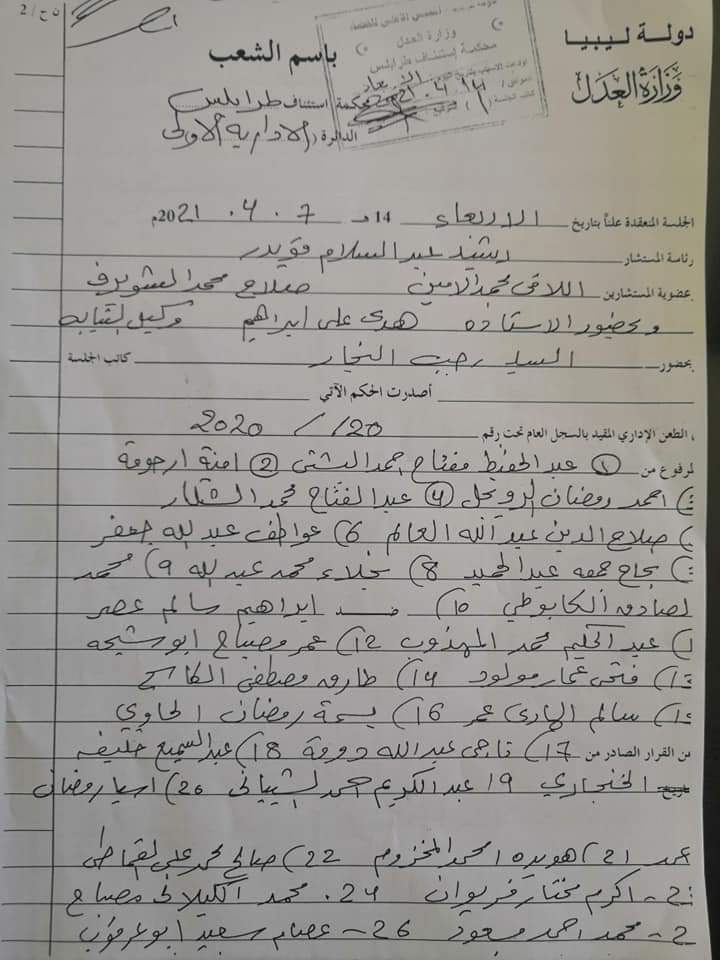 ن ح / 2
دولة ليبيا
وزارة العدل
باسم الشعب
وزارة العدل
محكمة إستئناف طرابلس
محكمة استئناف طرابلس
الدائرة الادارية الاولى
الجلسة المنعقدة علناً بتاريخ الاربعاء 14هـ 7 . 4 . 2021م
رئاسة المستشار رشيد عبد السلام قويدر
عضوية المستشارين اللافي محمد الامين صلاح محمد الشويرف
وبحضور الاستاذه هدى على ابراهيم وكيل النيابه
بحضور السيد رجب النجار كاتب الجلسة
أصدرت الحكم الآتي
الطعن الإداري المقيد بالسجل العام تحت رقم 120 / 2020
المرفوع من 1 عبد الحفيظ مفتاح احمد 2 امنة ارحومة
احمد رمضان الرويحل 4 عبد الفتاح محمد
صلاح الدين عبد الله العالم 6) عواطف عبد الله جعفر
جمعه عبد الحميد 8) نجلاء محمد عبد الله 9) محمد
لصادق الكابوطي 10) ابراهيم سالم
عبد الحكيم محمد المهذوب 12) عمر مصباح ابوشيحه
فتحى عمار مولود 14) طارق مصطفى
سالم الهادى عمر 16) بسمة رمضان الحاوي
من القرار الصادر من 17) ناجى عبد الله دومة 18) عبد السميع خليفه
الخنجاري 19 عبد الكريم احمد الشيبانى 20) اسيا رمضان
21) هويده امحمد المخزوم 22) صالح محمد على القماطى
اكرم مختار فريوان 24. محمد الكيلانى مصباح
محمد احمد مسعود 26- عصام سعيد ابوعرقوب